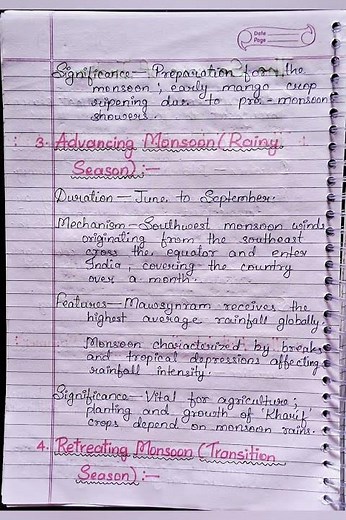 Date
Page
Significance — Preparation for the
monsoon; early mango crop
ripening due to pre-monsoon
showers.
3. Advancing Monsoon (Rainy
Season) :—
Duration — June to September.
Mechanism — Southwest monsoon winds
originating from the southeast
cross the equator and enter
India, covering the country
over a month.
Features — Mawsynram receives the
highest average rainfall globally.
Monsoon characterized by breaks
and tropical depressions affecting
rainfall intensity.
Significance — Vital for agriculture;
planting and growth of 'Kharif'
crops depend on monsoon rains.
4. Retreating Monsoon (Transition
Season) :—